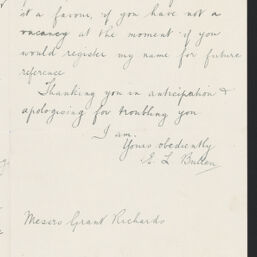 it a favour, if you have not a
vacancy at the moment if you
would register my name for future
reference
Thanking you in anticipation &
apologising for troubling you
I am.
Yours obediently
E. L. Bullen
Messrs Grant Richards